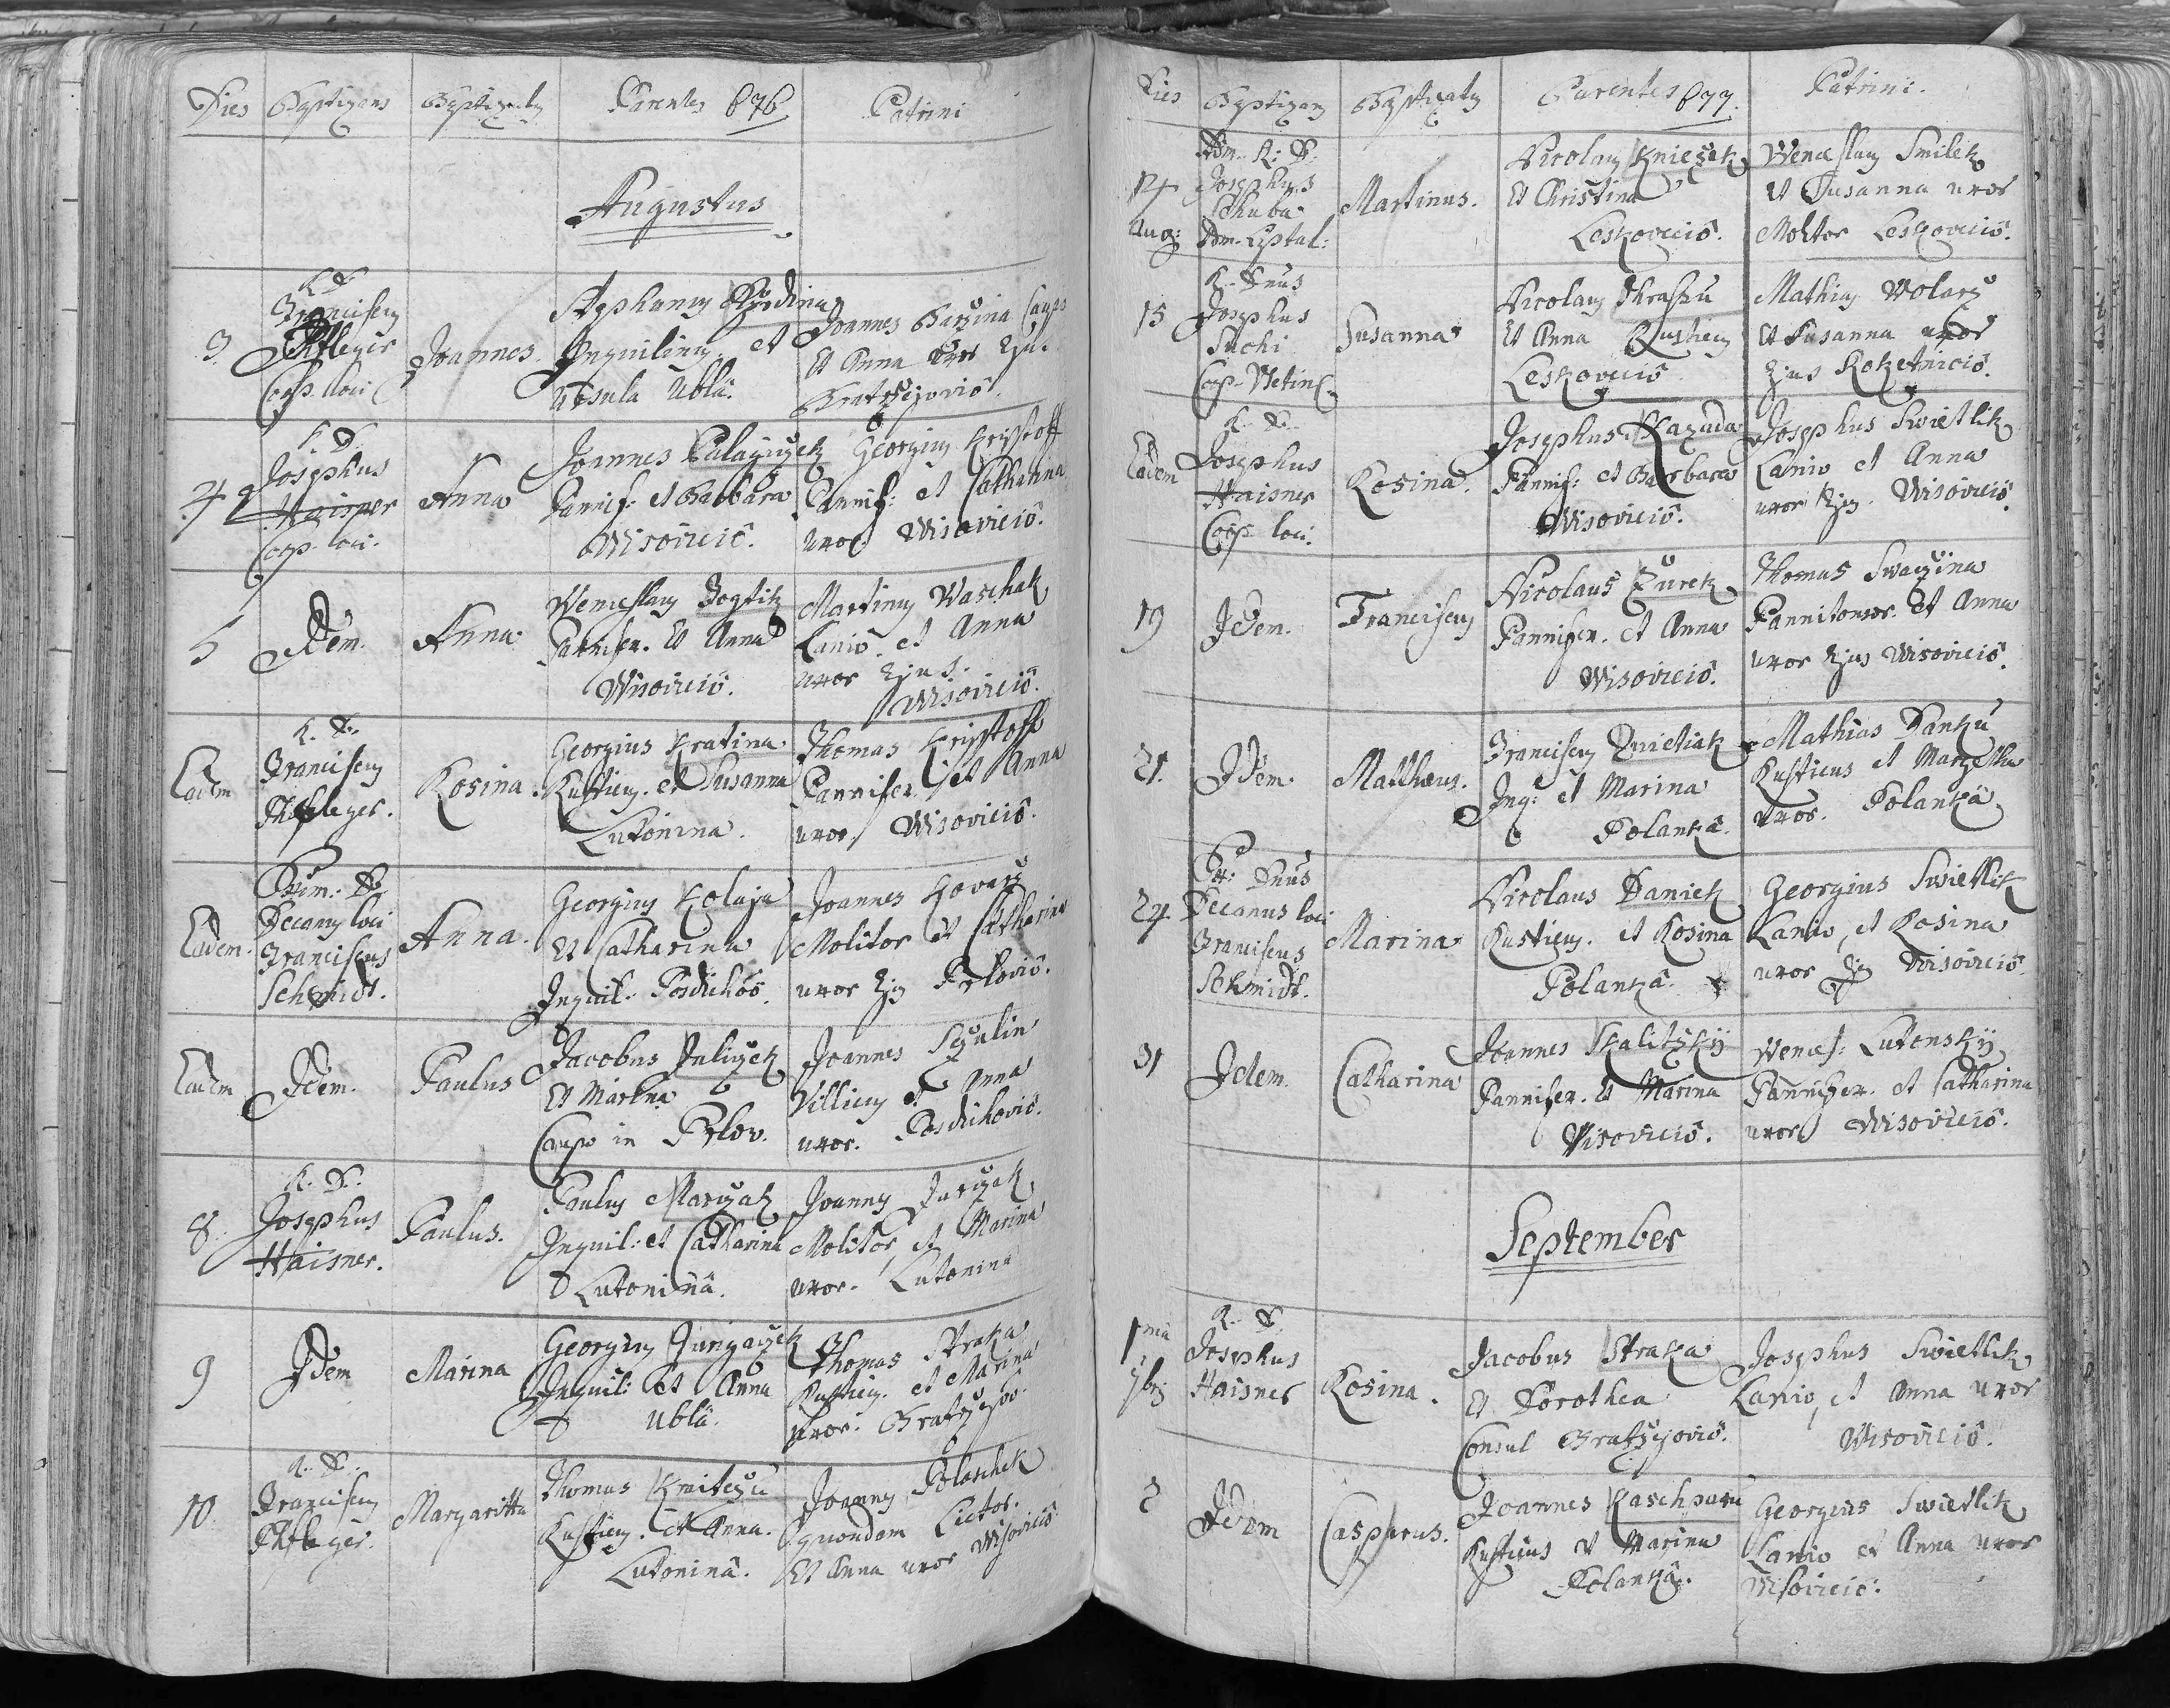 Dies Baptizans Baptizatus Parentes 676 Patrini
Augustus
3. R. D. Franciscus Pfleger Coop. loci Joannes. Stephanus Inquilinus et Ursula Ublä. Joannes Barzina Caupo et Anna uxor Eju. Bratrzejoviô.
4 R. D. Josephus Haisner Coop. loci. Anna Joannes Palazyczek Pannif: et Barbara Wisoviciô. Georgius Krisstoff Pannif: et Catharina uxor Wisoviciô.
5 Idem. Anna Wenceslaus Pannifex. et Anna Wisoviciô. Martinus Waschak Lanio. et Anna uxor Ejus. Wisoviciô.
Eadem R. D. Franciscus Pfleger. Rosina. Georgius Kratina Rusticus. et Susanna Lutonina. Thomas Krisstoff Pannifex et Anna uxor Wisoviciô.
Eadem. Decanus loci Franciscus Schmidt. Anna. Georgius Kolaja et Catharina Inquil. Joannes Kovarz Molitor et Catharina uxor Ejus
Eadem Idem. Paulus Jacobus Juliczek et Marina Caupo in Prlov. Joannes Villicus et Anna uxor.
8. R. D. Josephus Haisner. Paulus. Paulus Marczak Inquil: et Catharina Lutoninâ. Joannes Jurczak Molitor, et Marina uxor. Lutonina
9 Idem Marina Georgius Jurigaczek Inquil: et Anna Ublä. Thomas Straka Rusticus. et Marina uxor. Bratrzejov.
10. R. D. Franciscus Pfleger. Margaritta Thomas Rusticus. et Anna. Lutoninâ. Joannes Polaschek quondam Lictor. et Anna uxor Wisoviciô
Dies Baptizans Baptizatus Parentes 677. Patrini.
14 Aug: Adm. R: D: Josephus Martinus. Nicolaus Kniežek et Christina Leskoveciô. Wenceslaus Smilek et Susanna uxor Molitor Leskoveciô.
15 R. Dnus Josephus Suchi Coop. Susanna Nicolaus et Anna Rusticus Leskoveciô Mathias Wolarz et Susanna uxor Ejus Roketniciô.
Eadem R. D. Josephus Haisner Coop loci. Rosina. Josephus Kazuda Pannif: et Barbara Wisoviciô. Josephus Swietlik Lanio et Anna uxor Ejus. Wisoviciô.
19 Idem. Franciscus Nicolaus Žurek Pannifex. et Anna Wisoviciô. Thomas Swaczina Pannitonsor. et Anna uxor Ejus Wisoviciô.
21. Idem. Matthæus. Franciscus Inq: et Marina Polankâ. Mathias Danku Rusticus et uxor. Polankâ
24. Dnus Decanus loci Franciscus Schmidt. Marina Nicolaus Daniek Rusticus. et Rosina Polankâ. Georgius Swietlik Lanio, et Rosina uxor Wisoviciô
31 Idem. Catharina Joannes Skalitzkÿ Pannifex. et Marina Visoviciô. Wencesl: Lutonskÿ Pannifex. et Catharina uxor Wisoviciô.
September
1ma 7bris R. D. Josephus Haisner Rosina. Jacobus Straka et Dorothea Consul Bratrzejoviô. Josephus Swietlik Lanio, et Anna uxor Wisoviciô.
2 Idem Casparus. Joannes Kaschparu Rusticus et Marina Polankâ. Georgius Swietlik Lanio et Anna uxor Wisoviciô.